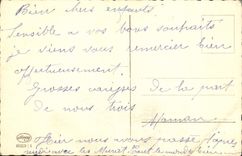 Bien chers enfants
Sensible a vos bons souhaits
je viens vous remercier bien
affectueusement.
Grosses caresses de la part
de nous trois
Maman
Hier nous avons passé l'après
midi avec les